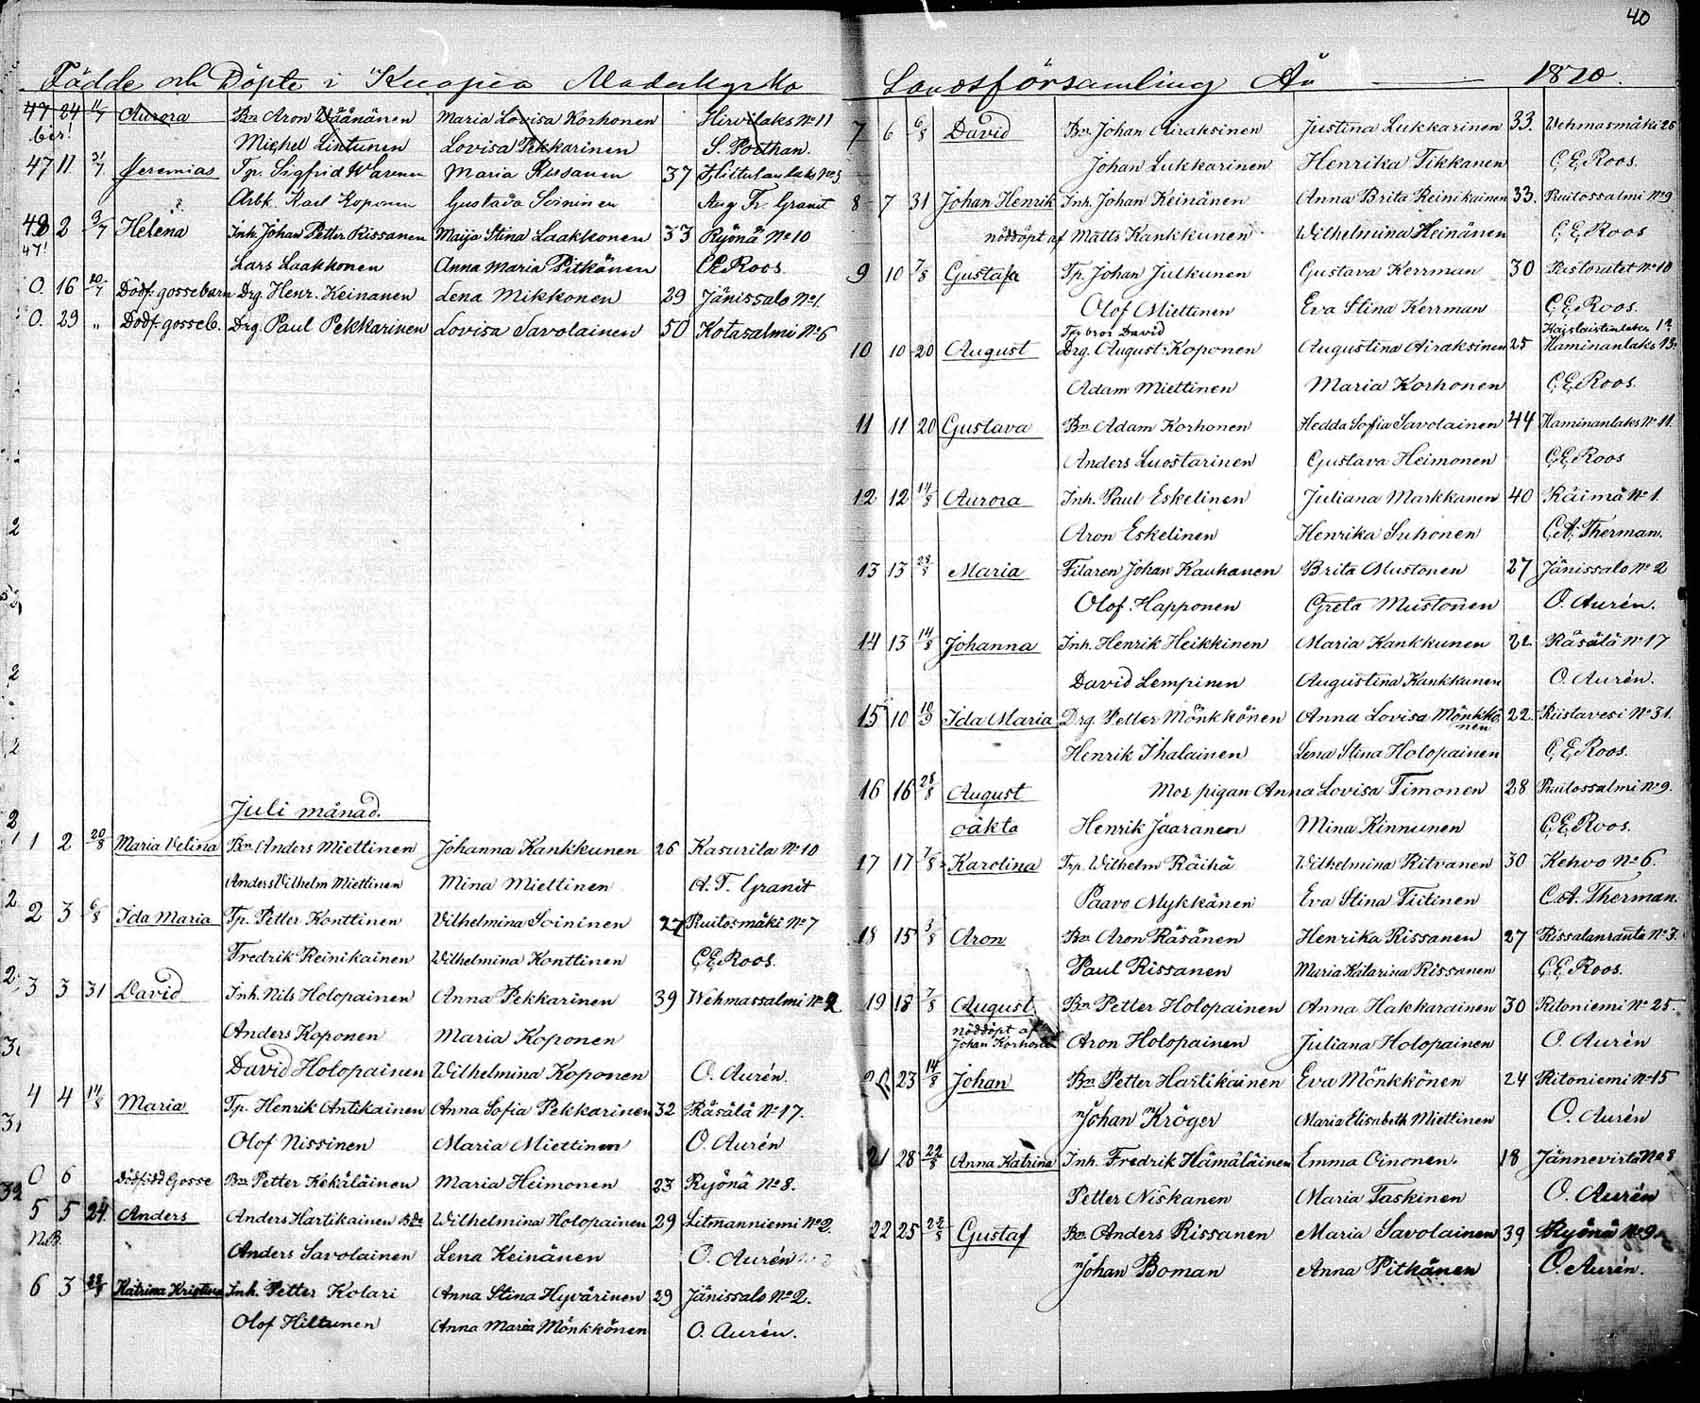 40
Födde och Döpte i Kuopio Moderkyrko
47 24 11/7 Aurora Bn Aron Väänänen Maria Lovisa Korhonen Hirvilaks No 11
bis! Michel Lintunen Lovisa Pekkarinen S. Porthan.
47 11 31/7 Jeremias Tp. Sigfrid Warenen Maria Rissanen 37 No 3
Arbk. Karl Koponen Gustava Soininen Aug Fr. Granit
48 2 3/7 Helena Inh. Johan Petter Rissanen Maija Stina Laakkonen 33 Ryönä No 10
47! Lars Laakkonen Anna Maria Pitkänen C.E. Roos.
0. 16 10/7 Dödf. gossebarn Drg. Henr. Keinanen Lena Mikkonen 29 Jänissalo No 1.
0. 29 " Dödf. gosseb. Drg. Paul Pekkarinen Lovisa Savolainen 50 Kotasalmi No 6
Juli månad.
1 2 20/8 Maria Velina Bn Anders Miettinen Johanna Kankkunen 26 Kasurila No 10
Anders Vilhelm Miettinen Mina Miettinen A. F. Granit
2 3 6/8 Ida Maria Tp. Petter Konttinen Vilhelmina Soininen 27 Puutosmäki No 7
Fredrik Reinikainen Wilhelmina Konttinen C.E. Roos.
3 3 31 David Inh. Nils Holopainen Anna Pekkarinen 39 Wehmassalmi No 2
Anders Koponen Maria Koponen
David Holopainen Wilhelmina Koponen O. Aurén.
4 4 14/8 Maria Tp. Henrik Antikainen Anna Sofia Pekkarinen 32 Räsälä No 17.
Olof Nissinen Maria Miettinen O. Aurén
0 6 Dödfödd Gosse Bn Petter Kekäläinen Maria Heimonen 23 Ryönä No 8.
5 5 24 Anders Anders Hartikainen Wilhelmina Holopainen 29 Litmanniemi No 2.
N.B. Anders Savolainen Lena Keinänen O. Aurén
6 3 Katrina Kristina Inh. Petter Kolari Anna Stina Hyvärinen 29 Jänissalo No 2.
Olof Hiltunen Anna Maria Mönkkönen O. Aurén.
Landsförsamling År 1870.
7 6 6/8 David Bn Johan Airaksinen Justina Lukkarinen 33. Wehmasmäki 25
Johan Lukkarinen Henrika Tikkanen C.E. Roos.
8 7 31 Johan Henrik Inh. Johan Keinänen Anna Brita Reinikainen 33. Puutossalmi No 9
nöddöpt af Matts Kankkunen Wilhelmina Heinänen C.E. Roos
9 10 7/8 Gustafa Tp. Johan Julkunen Gustava Kerrman 30 Pastoratet No 10
Olof Miettinen Eva Stina Kerrman C.E. Roos.
Tpr bror David
10 10 20 August Drg. August Koponen Augustina Airaksinen 25 Haminanlaks 13.
Adam Miettinen Maria Korhonen C.E. Roos.
11 11 20 Gustava Bn Adam Korhonen Hedda Sofia Savolainen 44 Haminanlaks No 11.
Anders Luostarinen Gustava Heimonen C.E. Roos
12 12 14/8 Aurora Inh. Paul Eskelinen Juliana Markkanen 40 Räimä No 1.
Aron Eskelinen Henrika Suhonen C.A. Therman.
13 13 28/8 Maria Filaren Johan Kauhanen Brita Mustonen 27 Jänissalo No 2
Olof Happonen Greta Mustonen O. Aurén.
14 13 14/8 Johanna Inh. Henrik Heikkinen Maria Kankkunen 22 Räsälä No 17
David Lempinen Augustina Kankkunen O. Aurén.
15 10 18/9 Ida Maria Drg. Petter Mönkkönen Anna Lovisa Mönkkönen 22. Riistavesi No 31.
Henrik Ihalainen Lena Stina Holopainen C.E. Roos.
16 16 28/8 August Mor pigan Anna Lovisa Timonen 28 Puutossalmi No 9.
oäkta Henrik Jaaranen Mina Kinnunen C.E. Roos.
17 17 7/8 Karolina Tp. Wilhelm Räihä Wilhelmina Ritvanen 30 Kehvo No 6.
Paavo Mykkänen Eva Stina Tiitinen C.A. Therman.
18 15 3/8 Aron Bn Aron Räsänen Henrika Rissanen 27 Rissalanranta No 3.
Paul Rissanen Maria Katarina Rissanen C.E. Roos.
19 18 7/8 August Bn Petter Holopainen Anna Hakkarainen 30 Ritoniemi No 25.
nöddöpt af
Johan Korhonen Aron Holopainen Juliana Holopainen O. Aurén
20 23 14/8 Johan Bn Petter Hartikainen Eva Mönkkönen 24 Ritoniemi No 15
Johan Kröger Maria Elisabeth Miettinen O. Aurén
21 28 22/8 Anna Katrina Inh. Fredrik Hämäläinen Emma Oinonen. 18 Jännevirta No 8
Petter Niskanen Maria Taskinen O. Aurén
22 25 22/8 Gustaf Bn Anders Rissanen Maria Savolainen 39 Ryönä No 9
Johan Boman Anna Pitkänen O. Aurén.